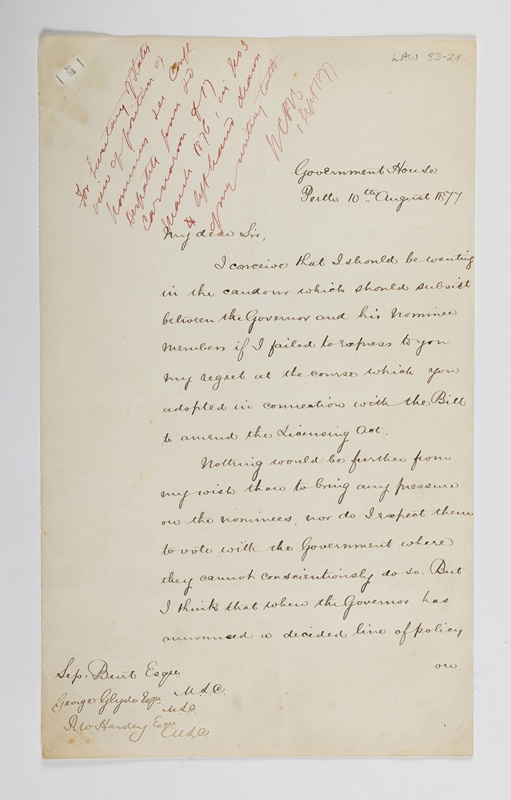 181
LAW 83-21
For Secretary of States
view of position of
nominees see Confl
despatch from Ld
Carnarvon of 17
March 1876, in No 3
left hand drawer
of my writing table.
1 Sept 1877
Government House
Perth 10th August 1877
My dear Sir,
I conceive that I should be wanting
in the candour which should subsist
between the Governor and his Nominee
Members if I failed to express to you
my regret at the course which you
adopted in connection with the Bill
to amend the Licensing Act.
Nothing would be further from
my wish than to bring any pressure
on the nominees, nor do I expect them
to vote with the Government where
they cannot conscientiously do so. But
I think that when the Governor has
announced a decided line of policy
on
Sep: Burt Esqre
M.L.C.
George Glyde Esqre
M.L.C
Hardey Esqre
M.L.C.